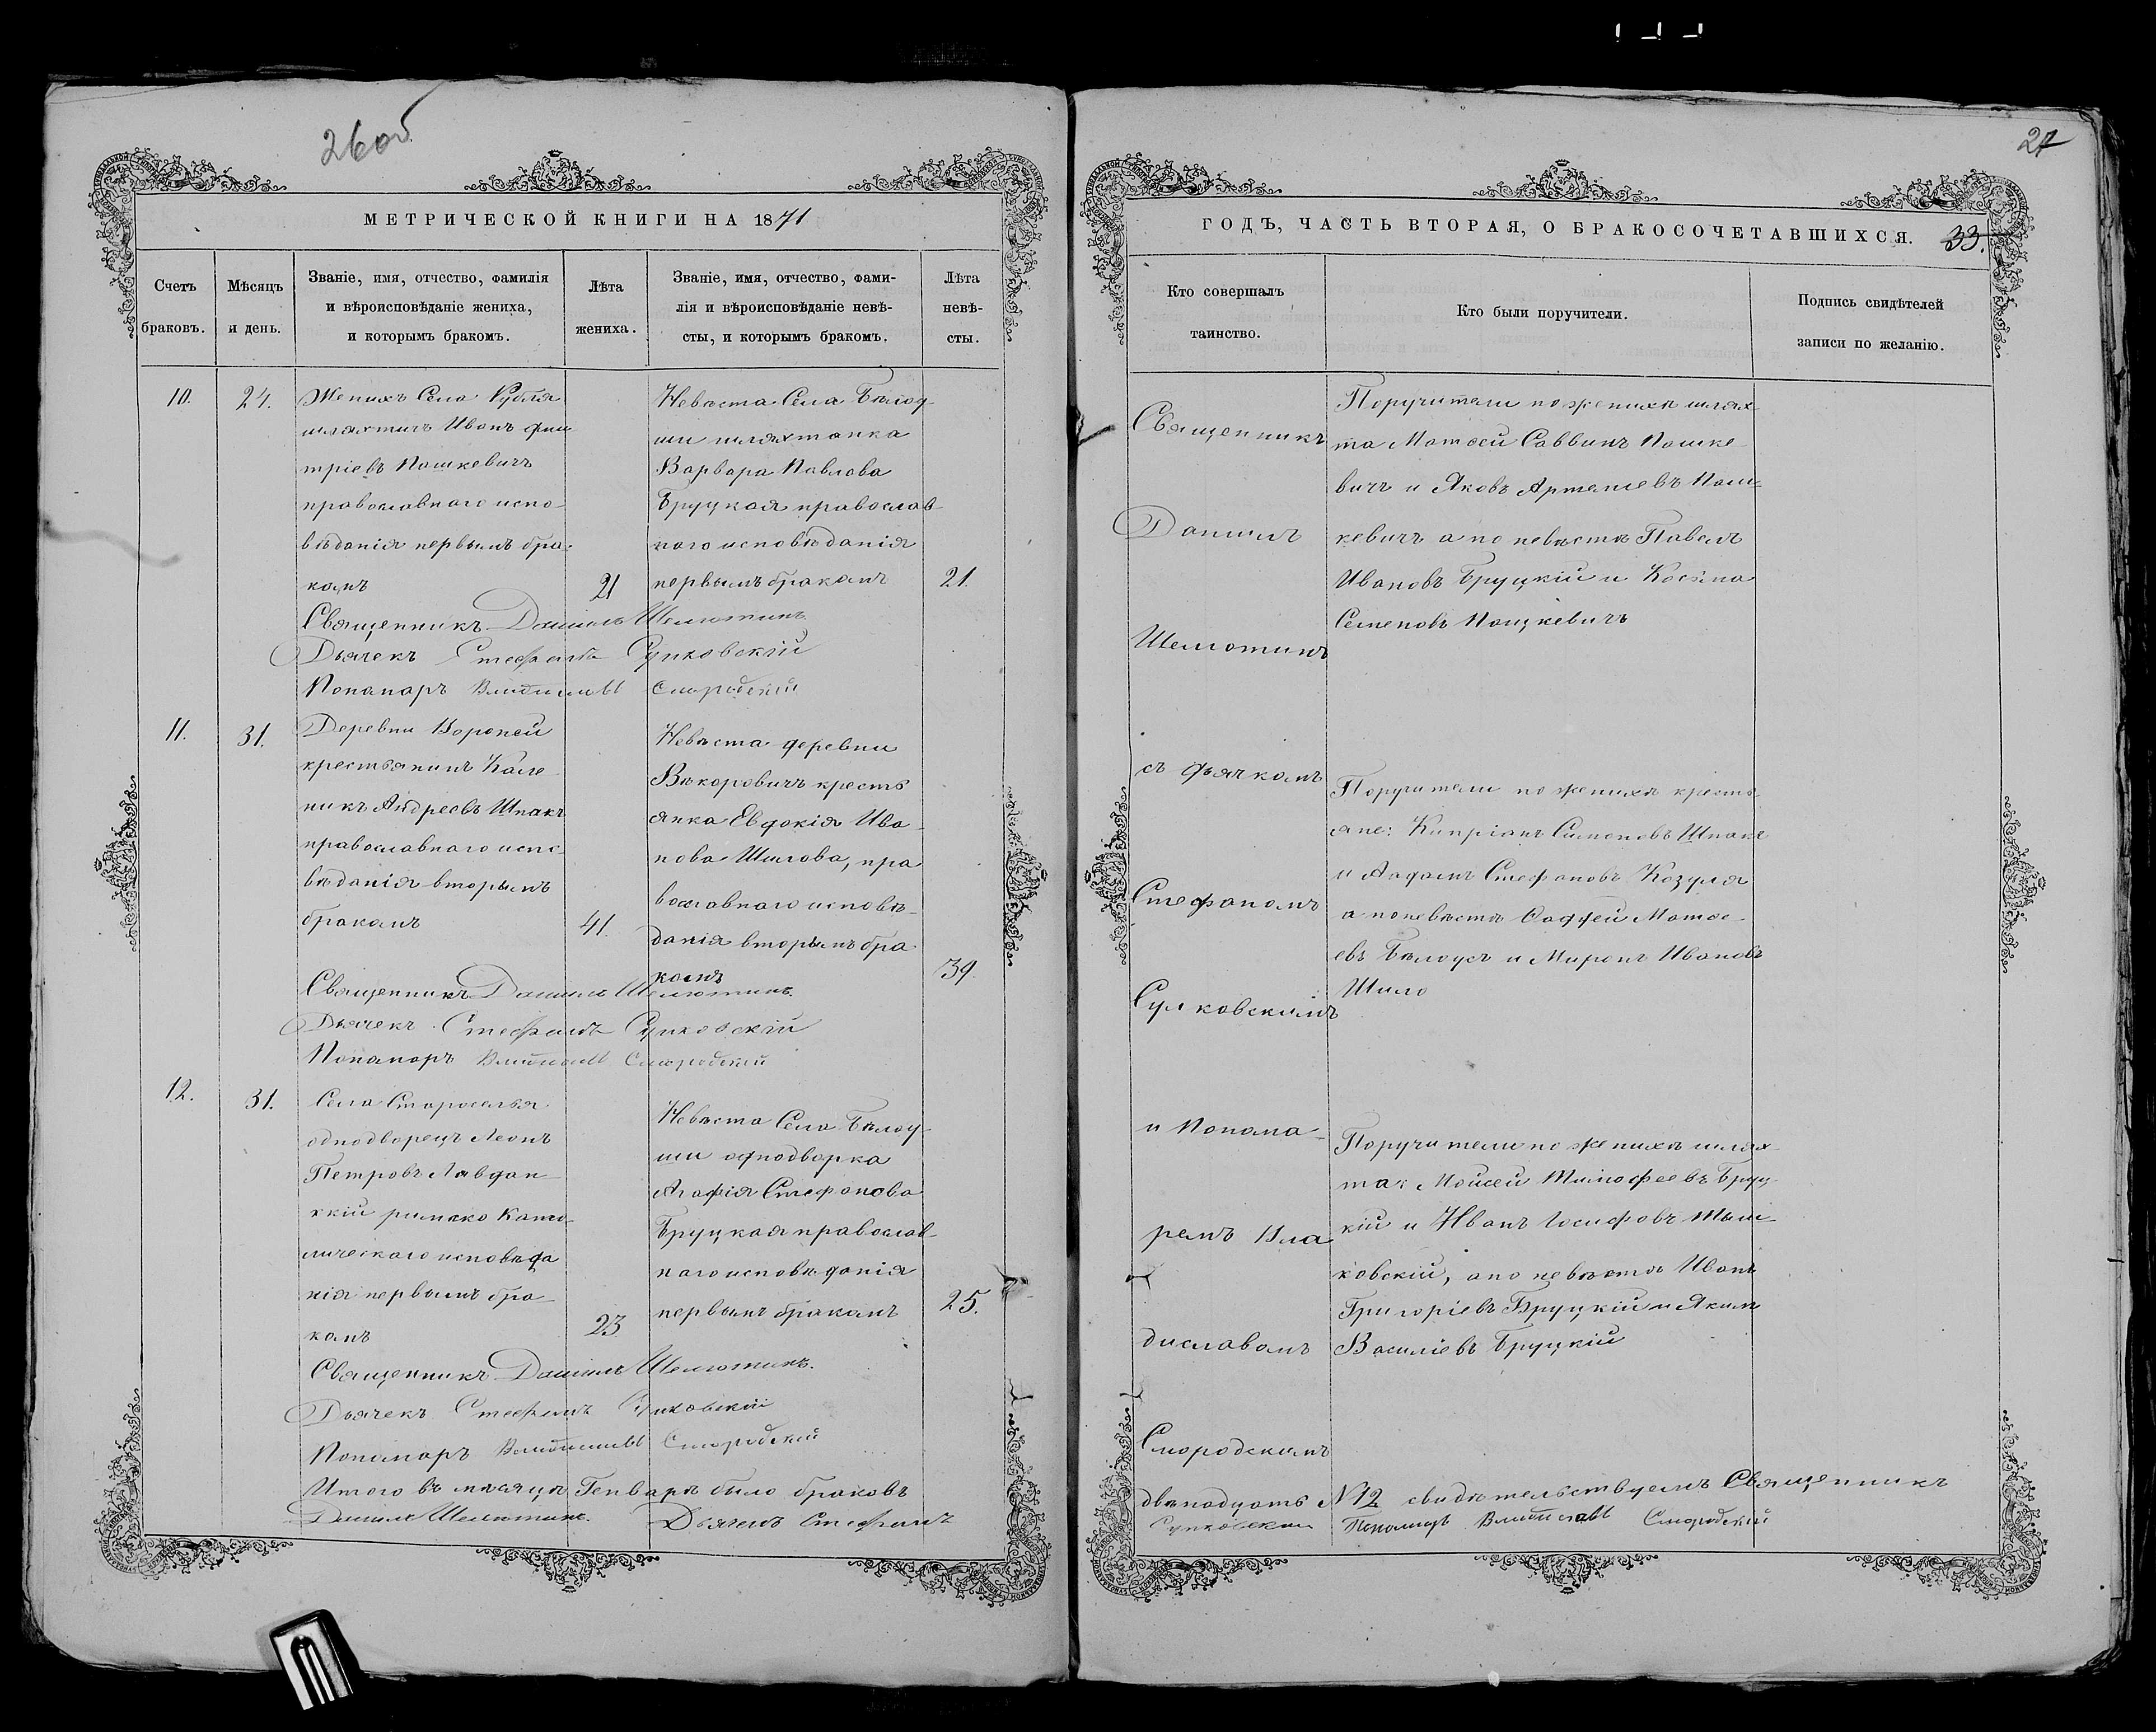 26об
МЕТРИЧЕСКОЙ КНИГИ НА 1871
Счетъ браковъ.
Мѣсяцъ и день.
Званіе, имя, отчество, фамилія и вѣроисповѣданіе жениха, и которымъ бракомъ.
Лѣта жениха.
Званіе, имя, отчество, фамилія и вѣроисповѣданіе невѣсты, и которымъ бракомъ.
Лѣта невѣсты.
10.
24.
Женихъ Села Рубля
шляхтичъ Иванъ Дми
тріевъ Пашкевичъ
православнаго испо-
вѣданія первымъ бра-
комъ
21
Невѣста Села Бѣлоу
ши шляхтанка
Варвара Павлова
Бруцкая православ-
наго исповѣданія
первымъ бракомъ
21.
Священникъ Даніилъ Шелютинъ
Дьячекъ Стефанъ Сулковскій
Понамаръ Владиславъ Смородскій
11.
31.
Деревни Вороней
крестьянинъ Кале
никъ Андреевъ Шпакъ
православнаго испо
вѣданія вторымъ
бракомъ
41.
Невѣста деревни
Викоровичъ кресть
янка Евдокія Ива-
нова Шилова, пра
вославнаго исповѣ-
данія вторымъ бра
комъ
39.
Священникъ Даніилъ Шелютинъ.
Дьячекъ Стефанъ Сулковскій
Понамаръ Владиславъ Смородскій
12.
31.
Села Староселья
однодворецъ Леонъ
Петровъ Лавдан-
скій римско Като-
лическаго исповѣда
нія первымъ бра-
комъ
23
Невѣста Села Бѣлоу-
ши однодворка
Агафія Стефанова
Бруцкая православ-
наго исповѣданія
первымъ бракомъ
25.
Священникъ Даніилъ Шелютинъ.
Дьячекъ Стефанъ Сулковскій
Понамаръ Владиславъ Смородскій
Итого въ мѣсяцѣ Генварѣ было браковъ
Даніилъ Шелютинъ. Дьячекъ Стефанъ
27
ГОДЪ, ЧАСТЬ ВТОРАЯ, О БРАКОСОЧЕТАВШИХСЯ. 33.
Кто совершалъ таинство.
Кто были поручители.
Подпись свидѣтелей записи по желанію.
Священникъ
Даниилъ
Шелютинъ
съ дьячкомъ
Стефаномъ
Сулковскимъ
и Понома-
ремъ Вла
диславомъ
Смородскимъ
Поручители по женихѣ шлях-
та Матвей Саввинъ Пашке
вичъ и Яковъ Артемьевъ Паш-
кевичъ а по невѣстѣ Павелъ
Ивановъ Бруцкій и Косьма
Семеновъ Пашкевичъ
Поручители по женихѣ кресть
яне: Кипріанъ Симоновъ Шпакъ
и Адамъ Стефановъ Козуля
а по невѣстѣ Фаддей Матве-
евъ Бѣлоусъ и Миронъ Ивановъ
Шило
Поручители по женихѣ шлях-
та: Мойсей Тимофеевъ Бруц-
кій и Иванъ Іосифовъ Тыш-
ковскій, а по невѣстѣ Иванъ
Григоріевъ Бруцкій и Якимъ
Василіевъ Бруцкій
двѣнадцать № 12 свидѣтельствуемъ Священникъ
Сулковскій Пономаръ Владиславъ Смородскій